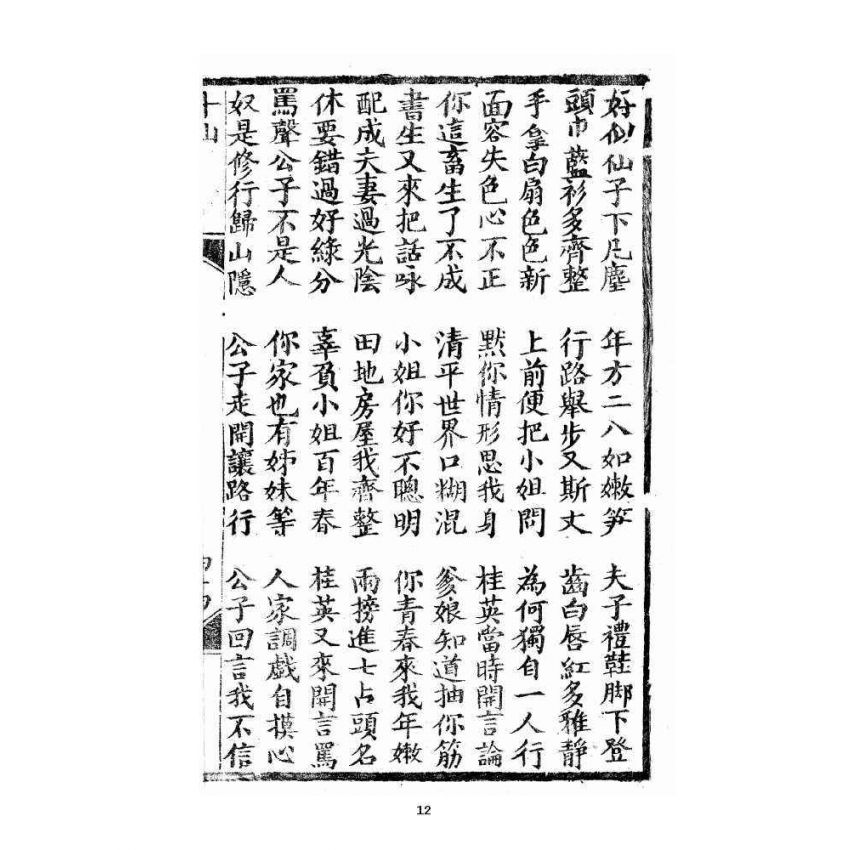 好似仙子下凡塵　年方二八如嫩笋　夫子禮鞋脚下登
頭巾藍衫多齊整　行路舉步又斯文　齒白唇紅多雅静
手拿白扇色色新　上前便把小姐問　為何獨自一人行
面容失色心不正　默你情形思我身　桂英當時開言論
你這畜生了不成　清平世界口糊混　爹娘知道抽你筋
書生又來把話咏　小姐你好不聰明　你青春來我年嫩
配成夫妻過光陰　田地房屋我齊整　兩搒進七占頭名
休要錯過好緣分　辜負小姐百年春　桂英又來開言罵
罵聲公子不是人　你家也有姊妹等　人家調戲自摸心
奴是修行歸山隱　公子走開讓路行　公子回言我不信
12